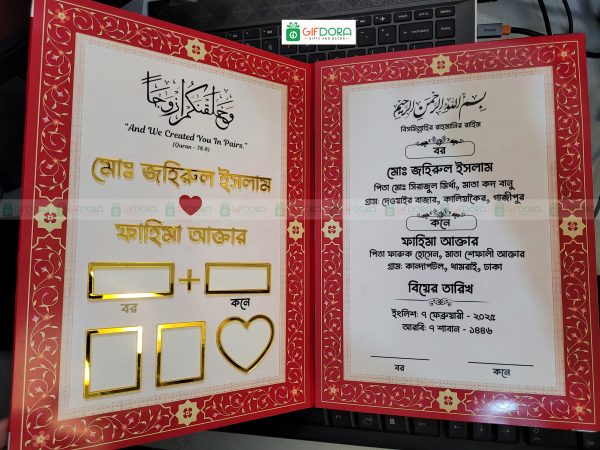 GIFDORA
GIFTS AND DECOR
وَخَلَقْنَاكُمْ أَزْوَاجًا
"And We Created You In Pairs."
(Quran - 78:8)
মোঃ জহিরুল ইসলাম
ফাহিমা আক্তার
+
বর
কনে
بسم الله الرحمن الرحيم
বিসমিল্লাহির রাহমানির রাহিম
বর
মোঃ জহিরুল ইসলাম
পিতা মোঃ সিরাজুল মির্ধা, মাতা কদ বানু
গ্রাম: দেওয়াইর বাজার, কালিয়াকৈর, গাজীপুর
কনে
ফাহিমা আক্তার
পিতা ফারুক হোসেন, মাতা শেফালী আক্তার
গ্রাম: কান্দাপটল, ধামরাই, ঢাকা
বিয়ের তারিখ
ইংলিশ: ৭ ফেব্রুয়ারী - ২০২৫
আরবি: ৭ শাবান - ১৪৪৬
বর
কনে